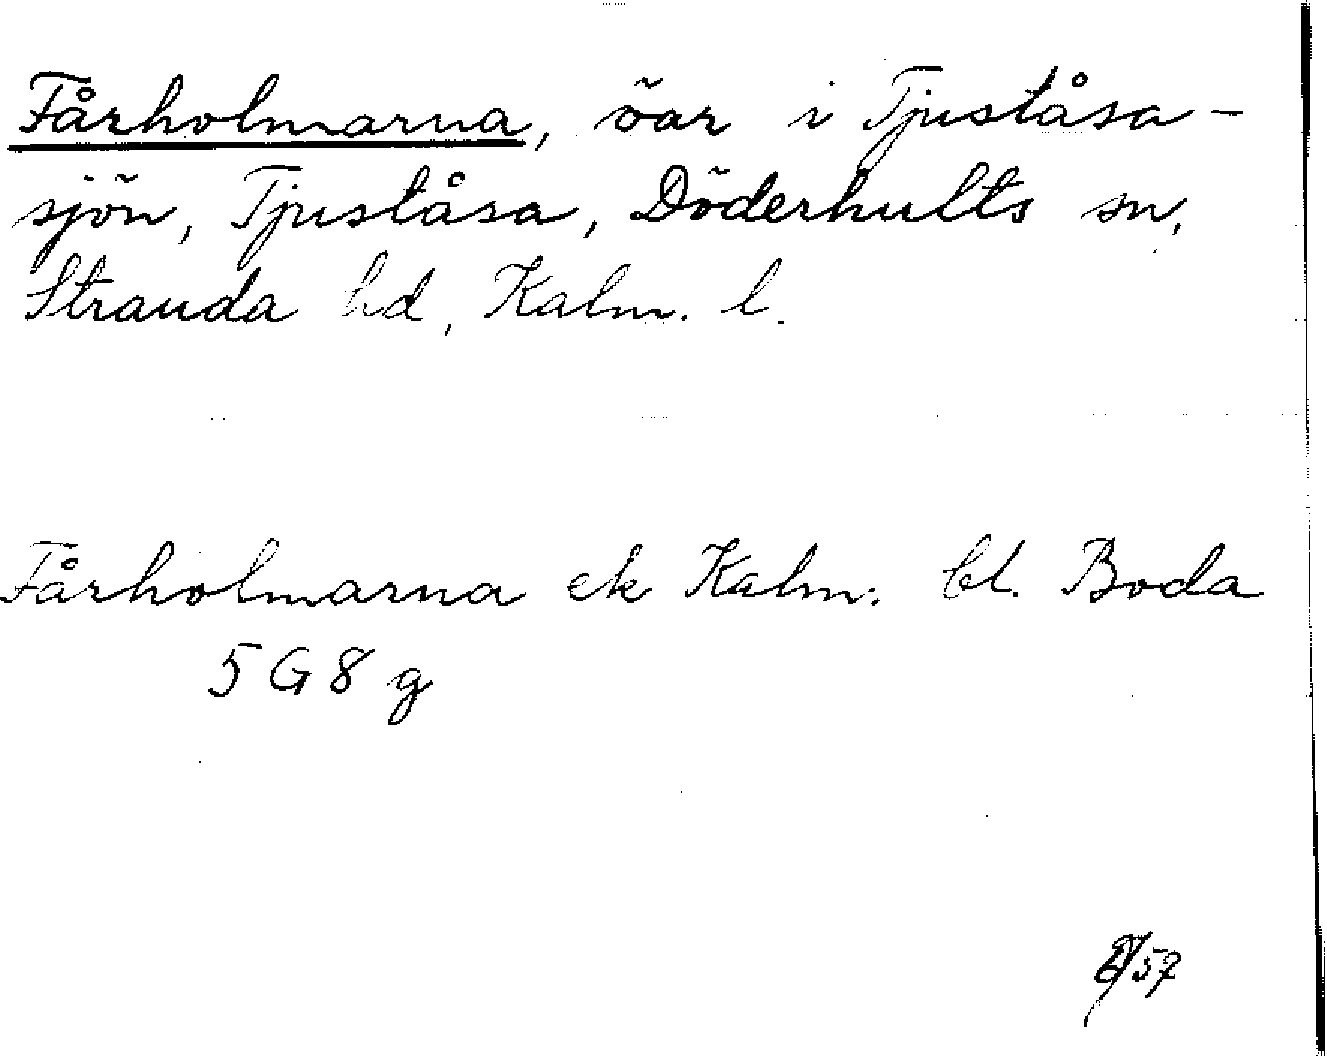 Fårholmarna, öar i Tjuståsa-
sjön, Tjuståsa, Döderhults sn,
Stranda hd, Kalm. l.
Fårholmarna ek Kalm. bl. Boda
5 G 8 g